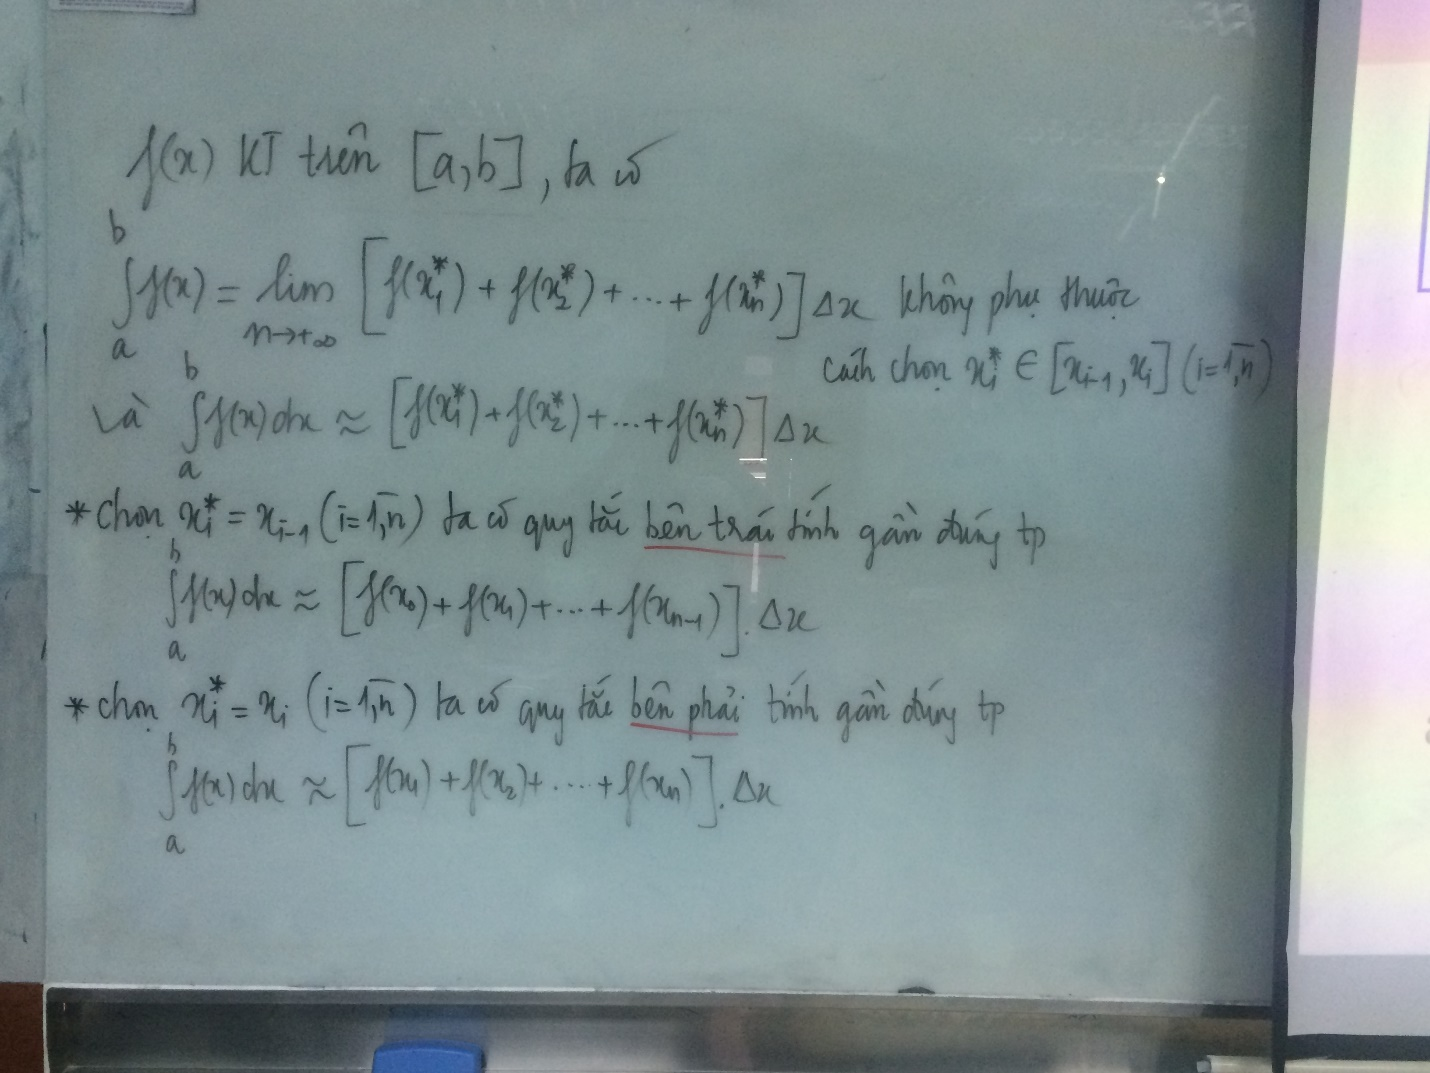 f(x) KT trên [a,b], ta có
∫_a^b f(x) = lim_{n→+∞} [f(x₁*) + f(x₂*) + ... + f(xₙ*)] Δx không phụ thuộc
cách chọn xᵢ* ∈ [xᵢ₋₁, xᵢ] (i=1,n̅)
Và ∫_a^b f(x)dx ≈ [f(x₁*) + f(x₂*) + ... + f(xₙ*)] Δx
* chọn xᵢ* = xᵢ₋₁ (i=1,n̅) ta có quy tắc bên trái tính gần đúng tp
∫_a^b f(x)dx ≈ [f(x₀) + f(x₁) + ... + f(xₙ₋₁)]. Δx
* chọn xᵢ* = xᵢ (i=1,n̅) ta có quy tắc bên phải tính gần đúng tp
∫_a^b f(x)dx ≈ [f(x₁) + f(x₂) + .... + f(xₙ)]. Δx